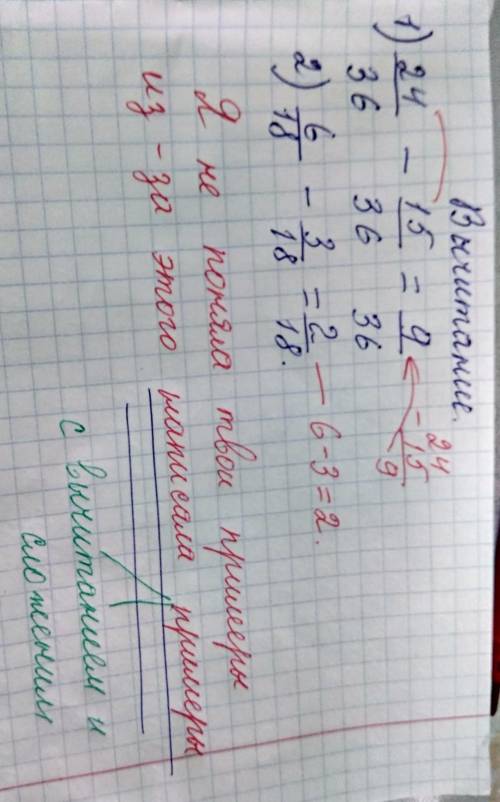 Вычитание.
1) 24/36 - 15/36 = 9/36
24
- 15
9
2) 6/18 - 3/18 = 2/18. — 6-3=2.
Я не поняла твои примеры
из-за этого написала примеры
с вычитанием и
сложением